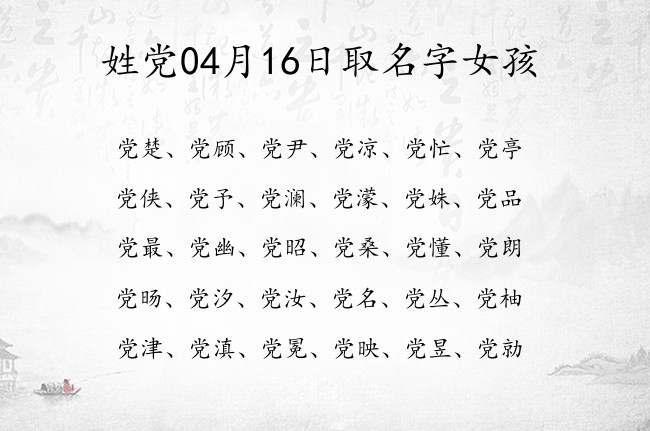 姓党04月16日取名字女孩
党楚、党顾、党尹、党凉、党忙、党亭
党侠、党予、党澜、党濛、党姝、党品
党最、党幽、党昭、党桑、党懂、党朗
党旸、党汐、党汝、党名、党丛、党柚
党津、党滇、党冕、党映、党昱、党勍